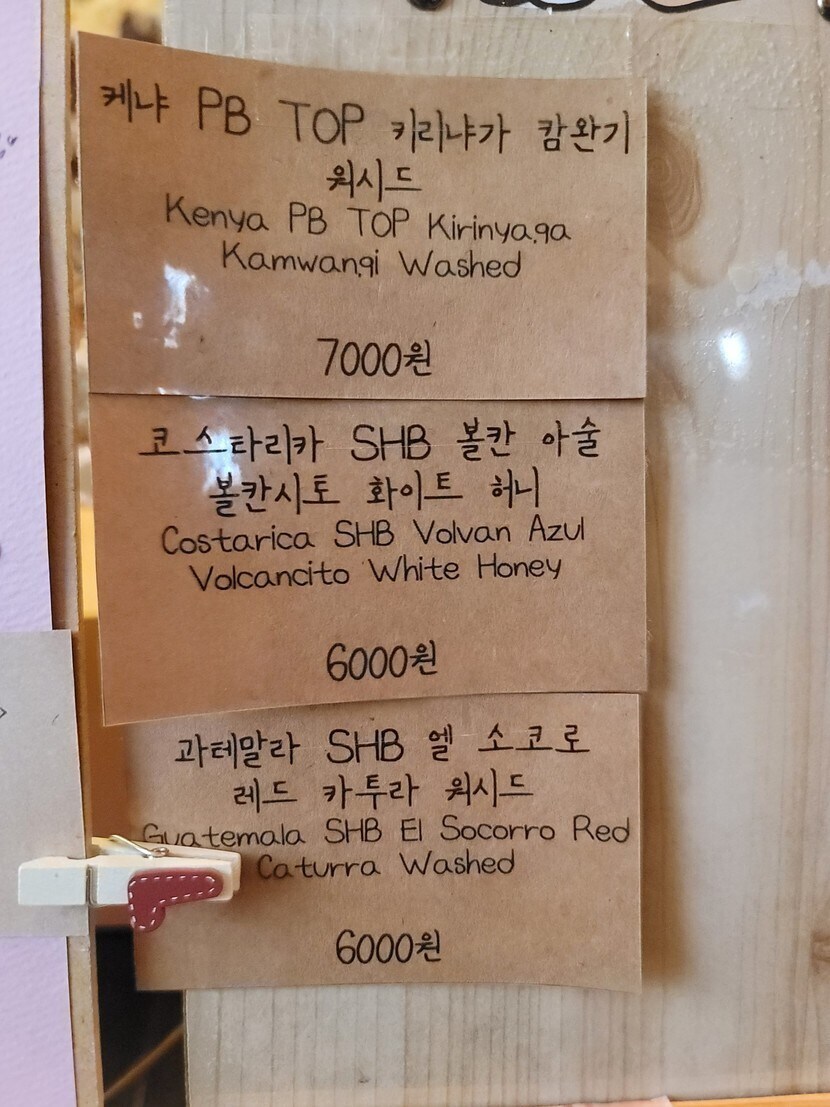 케냐 PB TOP 키리냐가 캄완기
워시드
Kenya PB TOP Kirinyaga
Kamwangi Washed
7000원
코스타리카 SHB 볼칸 아술
볼칸시토 화이트 허니
Costarica SHB Volvan Azul
Volcancito White Honey
6000원
과테말라 SHB 엘 소코로
레드 카투라 워시드
Guatemala SHB El Socorro Red
Caturra Washed
6000원